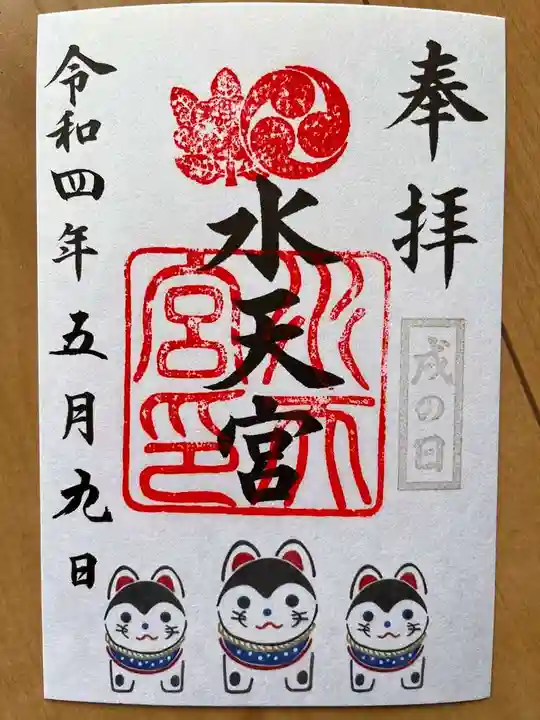 奉拝
戌の日
水天宮
水天宮印
令和四年五月九日